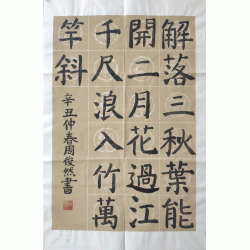 解落三秋葉能
開二月花過江
千尺浪入竹萬
竿斜
辛丑仲春周俊然書